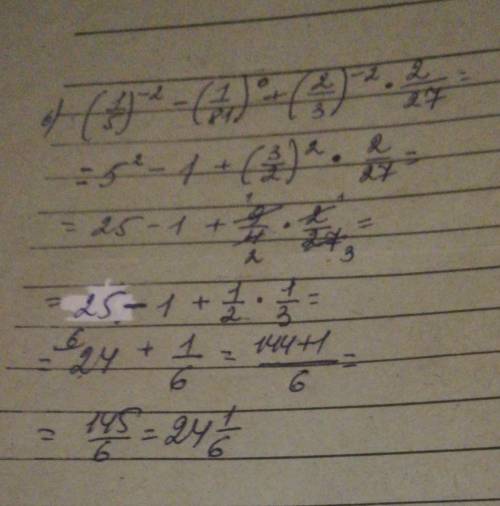 в) (1/5)^-2 - (1/81)^0 + (2/3)^-2 · 2/27 =
= 5^2 - 1 + (3/2)^2 · 2/27 =
= 25 - 1 + 9/4 · 2/27 =
1 1 2 3
= 25 - 1 + 1/2 · 1/3 =
= 6 24 + 1/6 = 144+1/6 =
= 145/6 = 24 1/6